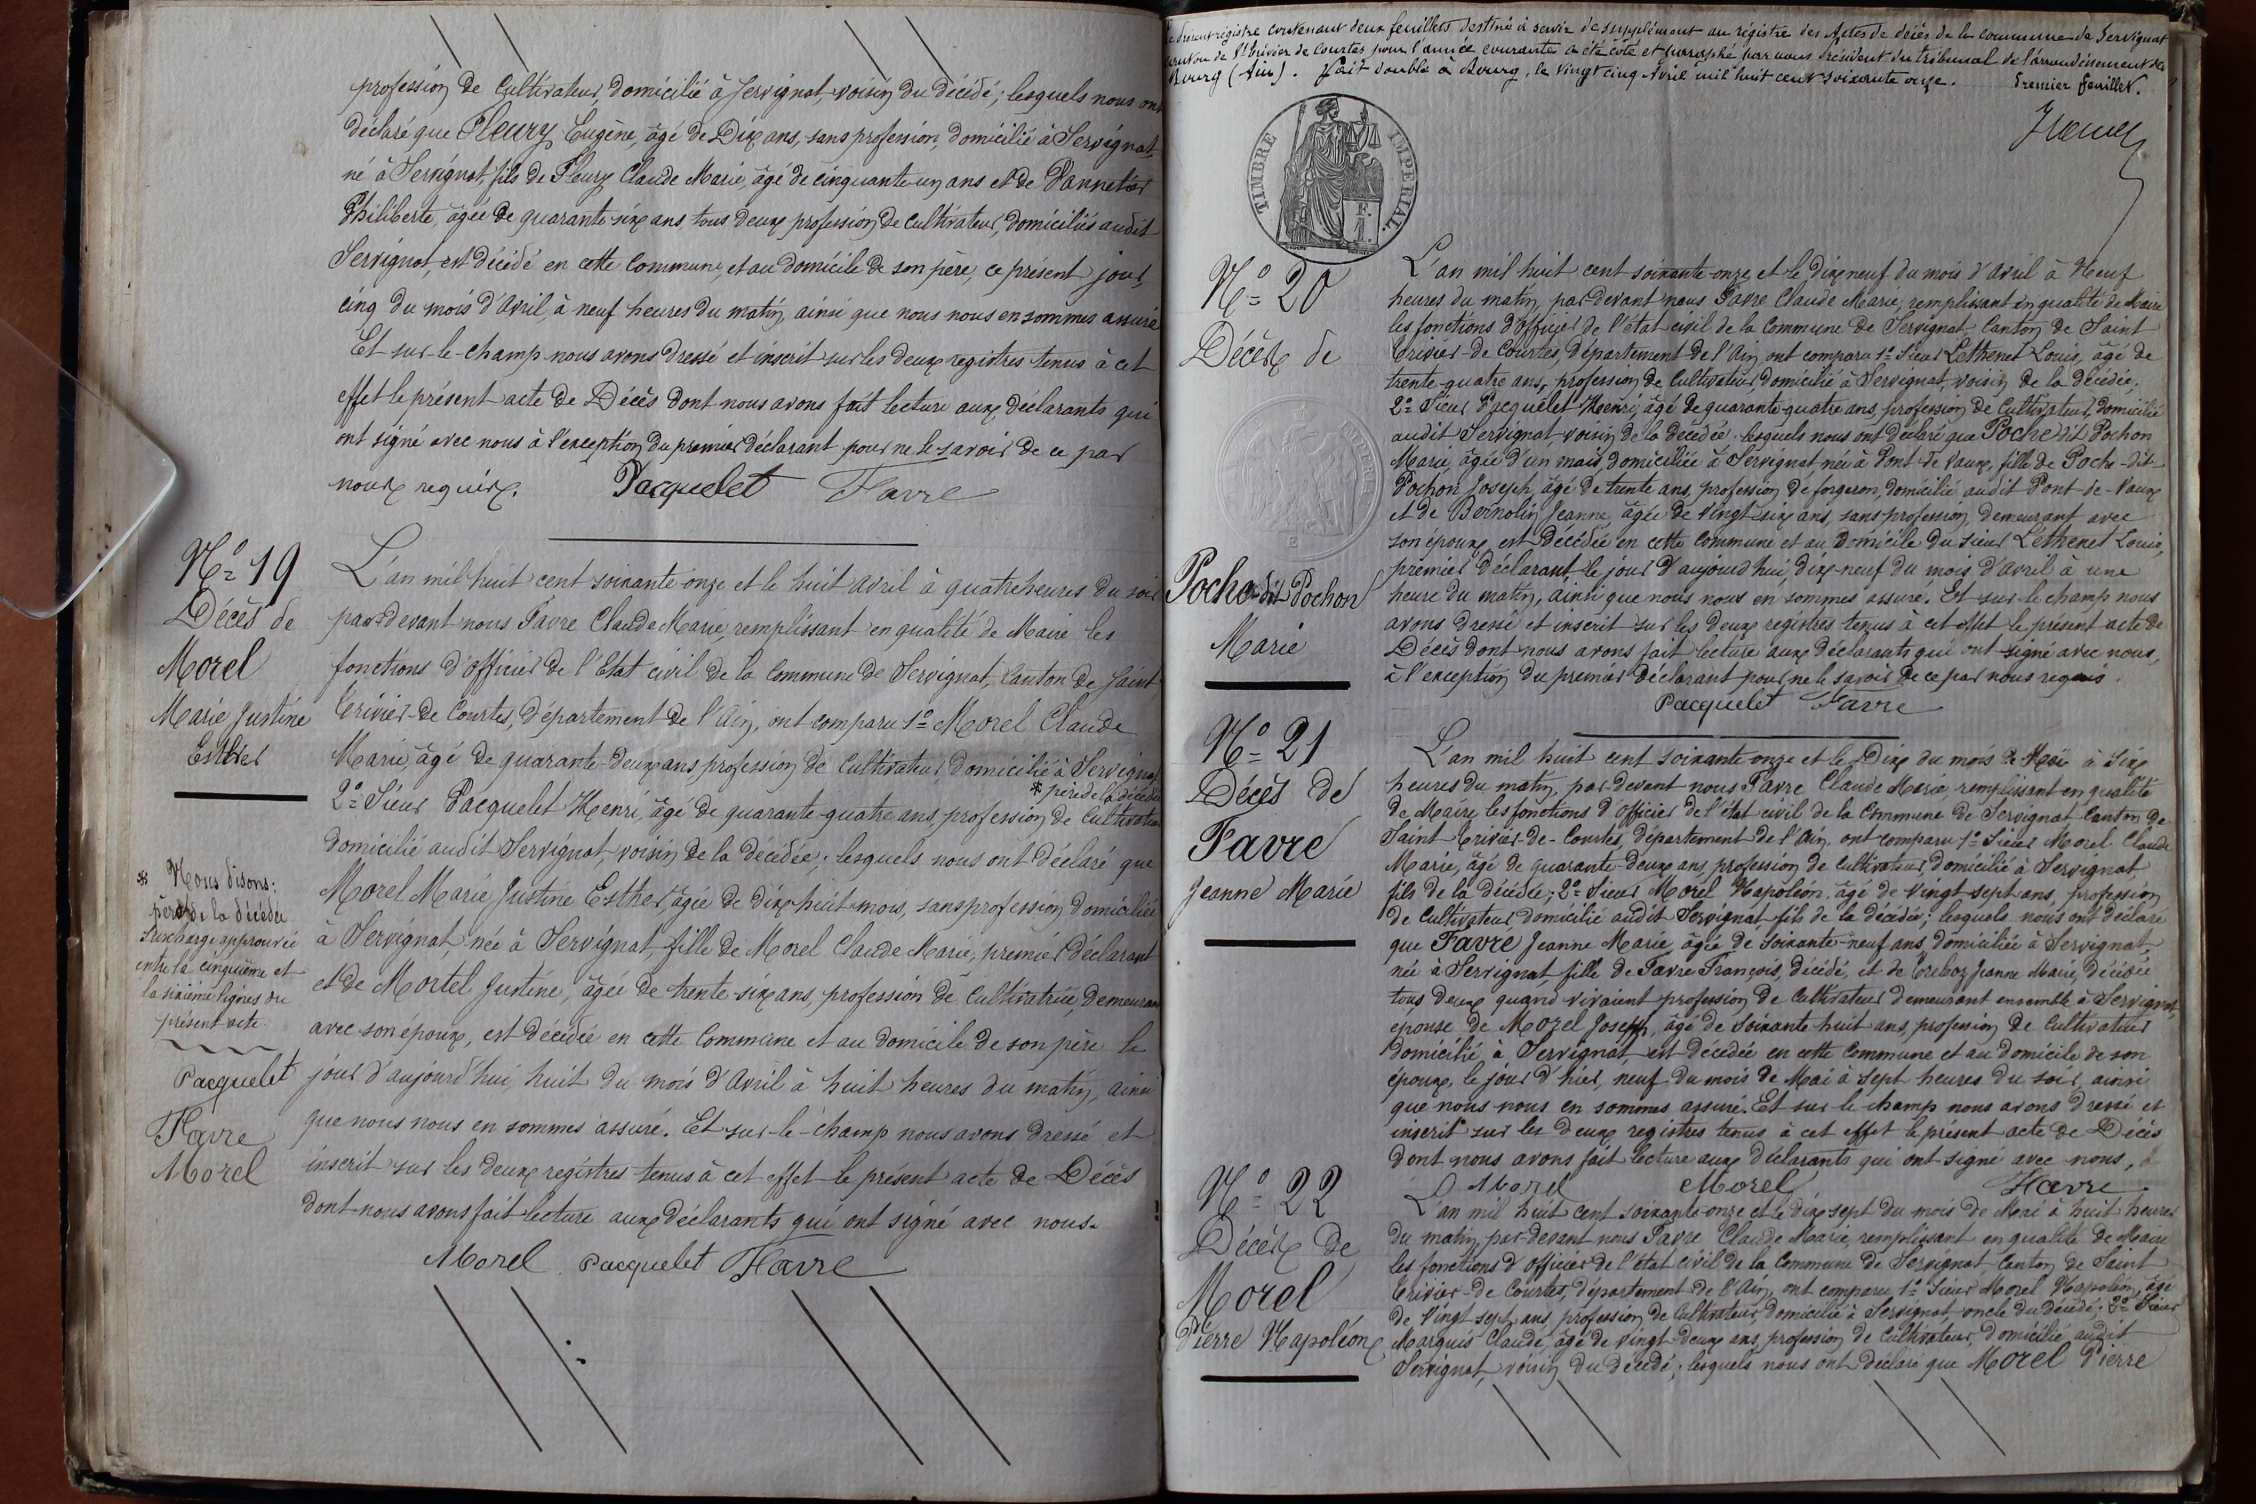 profession de Cultivateur, domicilié à Servignat, voisin du décédé; lesquels nous ont
déclaré que Fleury Eugène, âgé de Dix ans, sans profession, domicilié à Servignat,
né à Servignat, fils de Fleury Claude Marie, âgé de cinquante-un ans et de Pannetier
Philiberte, âgée de quarante-six ans, tous deux profession de Cultivateur, domiciliés audit
Servignat, est décédé en cette Commune, et au domicile de son père, ce présent jour,
cinq du mois d'Avril, à neuf heures du matin, ainsi que nous nous en sommes assuré
Et sur-le-champ nous avons dressé et inscrit sur les deux registres tenus à cet
effet le présent acte de Décès dont nous avons fait lecture aux déclarants qui
ont signé avec nous à l'exception du premier déclarant pour ne le savoir de ce par
nous requis. Pacquelet Favre
N° 19
Décès de
Morel
Marie Justine
Esther
L'an mil huit cent soixante-onze et le huit avril à quatre heures du soir
par-devant nous Favre Claude Marie, remplissant en qualité de Maire les
fonctions d'officier de l'Etat civil de la Commune de Servignat, Canton de Saint
Trivier-de-Courtes, Département de l'Ain, ont comparu 1° Morel Claude
Marie, âgé de quarante-deux ans profession de Cultivateur domicilié à Servignat
* père de la décédée
2° Sieur Pacquelet Henri, âgé de quarante-quatre ans, profession de Cultivateur
domicilié audit Servignat, voisin de la décédée; lesquels nous ont déclaré que
Morel Marie Justine Esther, âgée de dix-huit mois, sans profession, domiciliée
à Servignat, née à Servignat, fille de Morel Claude Marie, premier déclarant
et de Mortel Justine, âgée de trente-six ans, profession de Cultivatrice, Demeurant
avec son époux, est décédée en cette Commune et au domicile de son père le
jour d'aujourd'hui huit du mois d'Avril à huit heures du matin, ainsi
que nous nous en sommes assuré. Et sur-le-champ nous avons dressé et
inscrit sur les deux registres tenus à cet effet le présent acte de Décès
dont nous avons fait lecture aux déclarants qui ont signé avec nous.
Morel Pacquelet Favre
* Nous disons:
père de la décédée
Surcharge approuvée
entre la cinquième et
la sixième lignes du
présent acte.
Pacquelet
Favre
Morel
Le présent registre contenant deux feuillets destiné à servir de supplément au régistre des Actes de décès de la commune de Servignat
canton de St Trivier de Courtes pour l'année courante a été coté et paraphé par nous président du tribunal de l'arrondissement de
Bourg (Ain). Fait double à Bourg, le vingt cinq Avril mil huit cent soixante onze. Premier feuillet.
TIMBRE IMPÉRIAL.
N° 20
Décès de
Poche-dit-Pochon
Marie
L'an mil huit cent soixante-onze et le Dix-neuf du mois d'Avril à Neuf
heures du matin, par devant nous Favre Claude Marie, remplissant en qualité de Maire
les fonctions d'officier de l'état civil de la Commune de Servignat, Canton de Saint
Trivier-de-Courtes, Département de l'Ain, ont comparu 1° Sieur Lethenet Louis, âgé de
trente-quatre ans, profession de Cultivateur, domicilié à Servignat, voisin de la décédée;
2° Sieur Pacquelet Henri, âgé de quarante-quatre ans, profession de Cultivateur, domicilié
audit Servignat voisin de la décédée. lesquels nous ont déclaré que Poche dit Pochon
Marie, âgée d'un mois, domiciliée à Servignat née à Pont-de-Vaux, fille de Poche-dit-
Pochon Joseph, âgé de trente ans, profession de forgeron, domicilié audit Pont-de-Vaux
et de Bernolin Jeanne âgée de vingt-six ans, sans profession, demeurant avec
son époux, est Décédée en cette Commune et au Domicile du sieur Lethenet Louis,
premier déclarant, le jour d'aujourd'hui, dix-neuf du mois d'Avril à une
heure du matin, ainsi que nous nous en sommes assuré. Et sur-le champ nous
avons dressé et inscrit sur les deux régistres tenus à cet effet le présent acte de
Décès dont nous avons fait lecture aux déclarants qui ont signé avec nous,
à l'exception du premier déclarant pour ne le savoir de ce par nous requis.
Pacquelet Favre
N° 21
Décès de
Favre
Jeanne Marie
L'an mil huit cent soixante-onze et le Dix du mois de Mai à Six
heures du matin, par devant nous Favre Claude Marie, remplissant en qualité
de Maire, les fonctions d'officier de l'état civil de la Commune de Servignat Canton de
Saint Trivier-de-Courtes, département de l'Ain, ont comparu 1° Sieur Morel Claude
Marie, âgé de quarante-deux ans, profession de Cultivateur, domicilié à Servignat,
fils de la décédée; 2° Sieur Morel Napoléon, âgé de vingt-sept ans, profession
de Cultivateur, domicilié audit Servignat, fils de la décédée; lesquels nous ont déclaré
que Favre Jeanne Marie, âgée de soixante-neuf ans, domiciliée à Servignat,
née à Servignat, fille de Favre François, décédé, et de Treboz Jeanne Marie, décédée
tous deux quand vivaient profession de Cultivateur demeurant ensemble à Servignat,
épouse de Morel Joseph, âgé de soixante huit ans, profession de Cultivateur
domicilié à Servignat est décédée en cette Commune et au domicile de son
époux, le jour d'hier, neuf du mois de Mai à sept heures du soir, ainsi
que nous nous en sommes assuré. Et sur le champ nous avons dressé et
inscrit sur les deux registres tenus à cet effet le présent acte de Décès
dont nous avons fait lecture aux déclarants qui ont signé avec nous,
Morel Morel Favre
N° 22
Décès de
Morel
Pierre Napoléon
L'an mil huit cent soixante-onze et le dix sept du mois de Mai à huit heures
du matin, par-devant nous Favre Claude Marie, remplissant en qualité de Maire
les fonctions d'officier de l'état civil de la Commune de Servignat Canton de Saint
Trivier-de-Courtes, département de l'Ain, ont comparu 1° Sieur Morel Napoléon, âgé
de vingt-sept ans, profession de Cultivateur, domicilié à Servignat, oncle du décédé; 2° Sieur
Marquis Claude, âgé de vingt-deux ans, profession de Cultivateur, domicilié audit
Servignat, voisin du décédé; lesquels nous ont déclaré que Morel Pierre